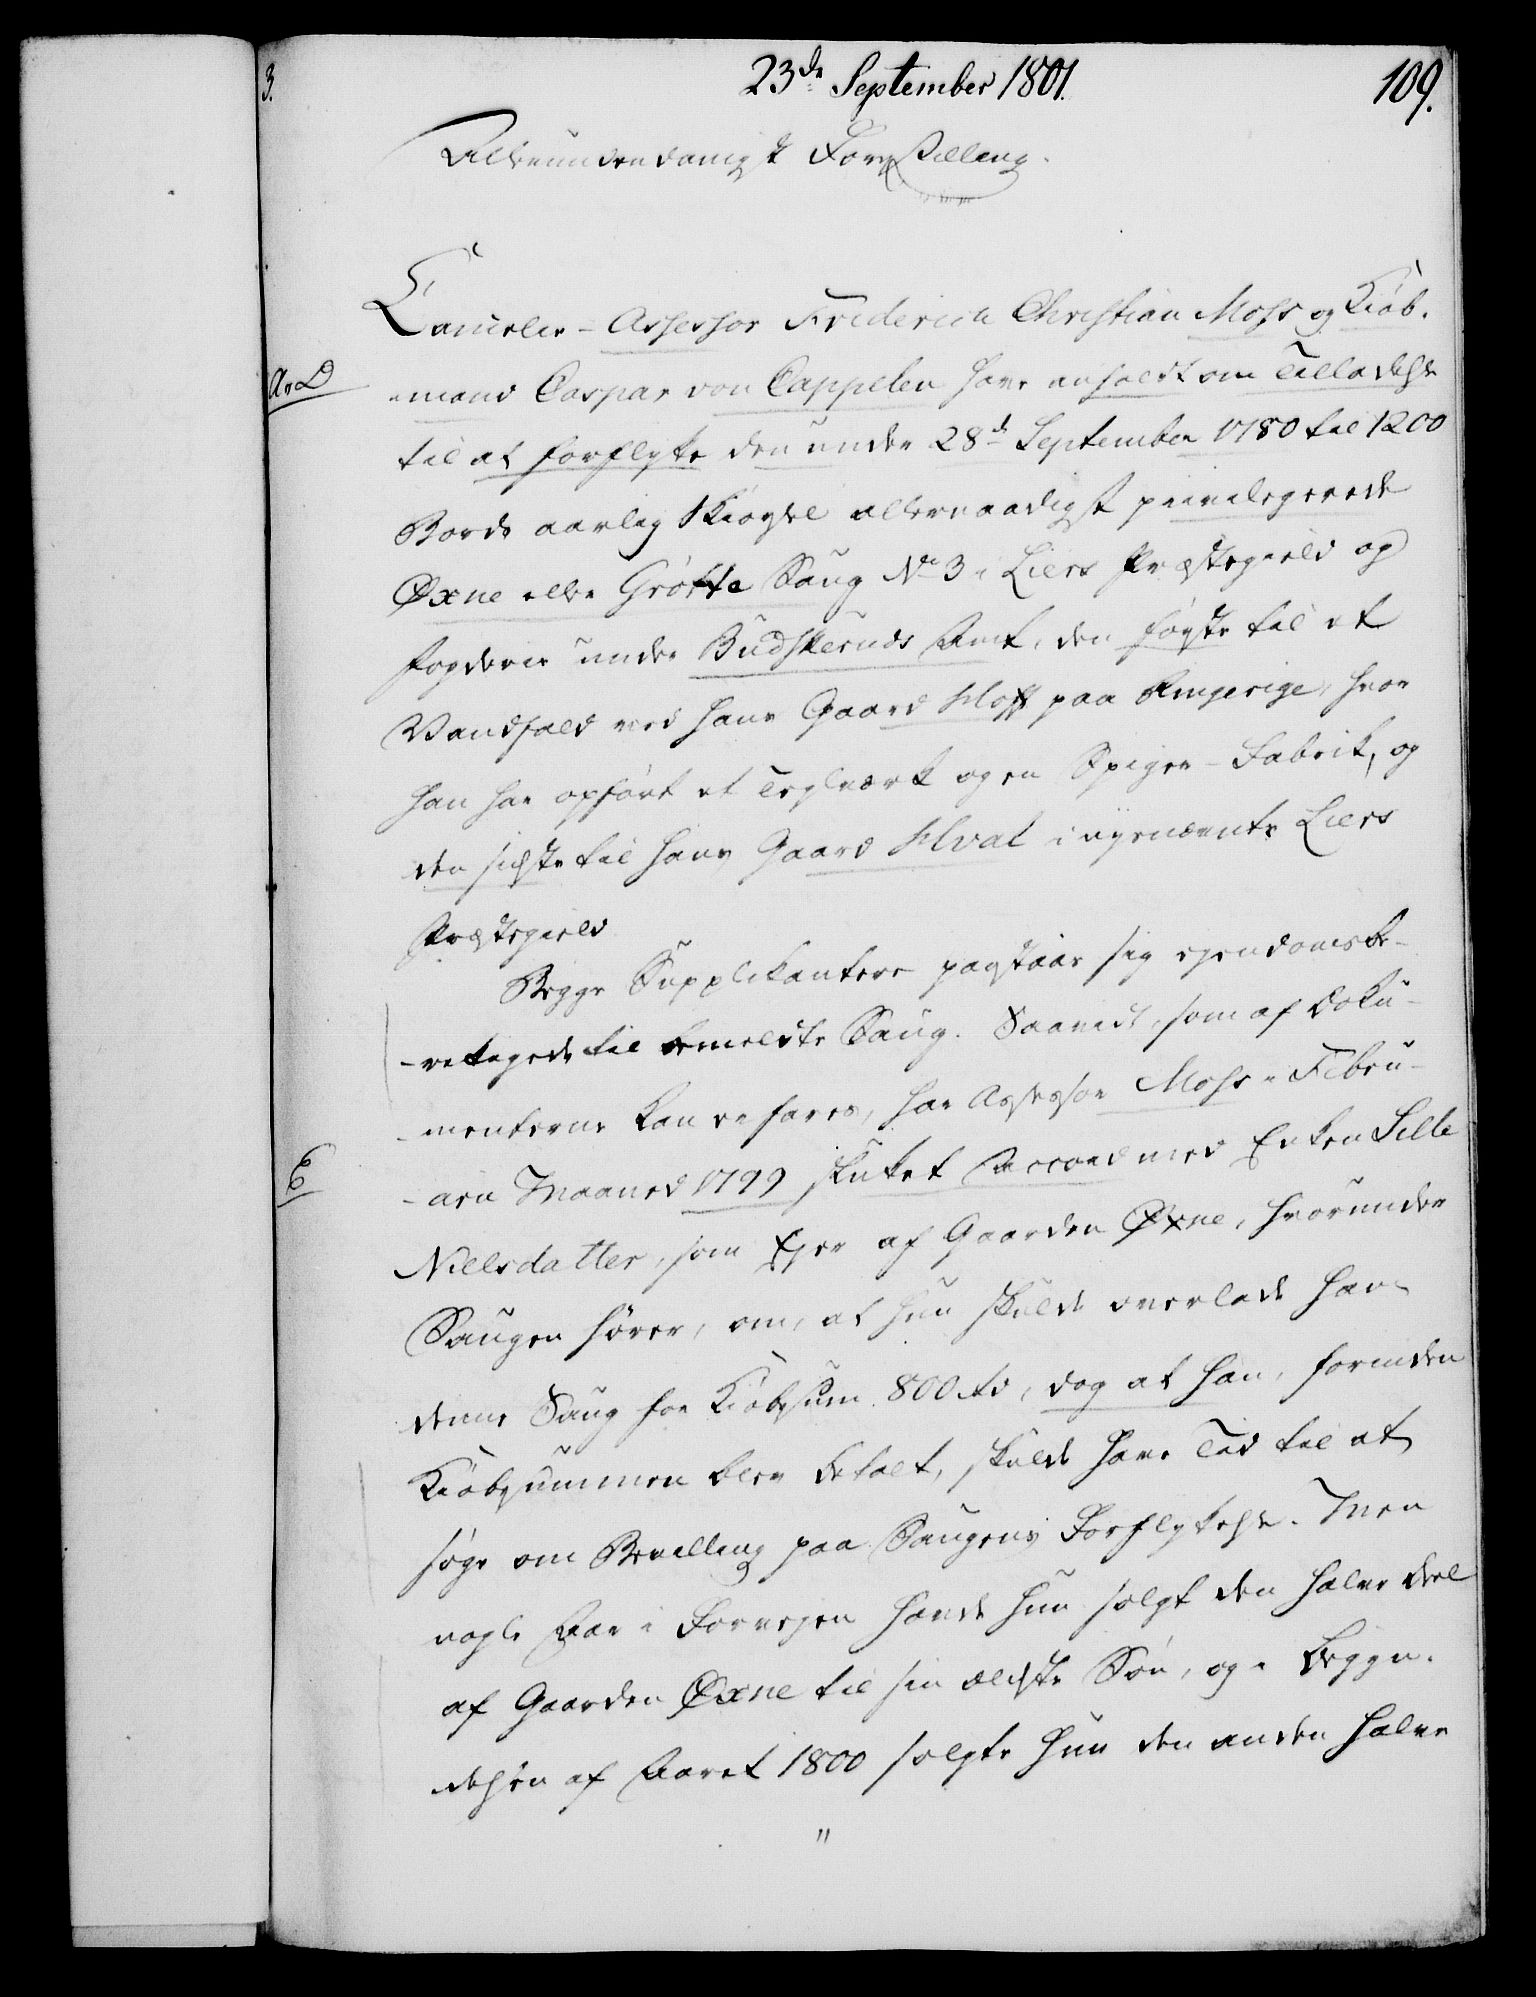 3.
23de September 1801.
109.
Allerunderdanigst Forestilling.
Cancelie-Assessor Friderich Christian Mohr og Kiøb-
A-D
-mand Caspar von Cappelen have anholdt om Tilladelse
til at forflytte den under 28de September 1780 til 1200
Bords aarlig Skiørsel allernaadigst privilegerede
Øxne eller Grötte Saug No 3 i Liers Præstegield og
Fogderie under Budskeruds Amt, den første til et
Vandfald ved hans Gaard Hoff paa Ringerige, hvor
han har opført et Teglværk og en Spiger-Fabrik, og
den sidste til hans Gaard Hval i nysnævnte Liers
Præstegield
Begge Supplikantere paastaae sig ejendomsbe-
-rettigede til bemeldte Saug. Saavidt, som af Doku-
-menterne kan erfares, har Assessor Mohr i Febru-
E
-arii Maaned 1799 sluttet Accord med Enken Sille
Nielsdatter, som Ejer af Gaarden Øxne, hvorunder
Saugen hører, om, at hun skulde overlade ham
denne Saug for Kiøbsum 800 rd, dog at han, forinden
Kiøbsummen blev betalt, skulde have Tid til at
søge om Bevilling paa Saugens Forflyttelse. Men
nogle Aar i Forvejen havde hun solgt den halve Deel
af Gaarden Øxne til sin ældste Søn, og i Begyn-
delsen af Aaret 1800 solgte hun den anden halve
"